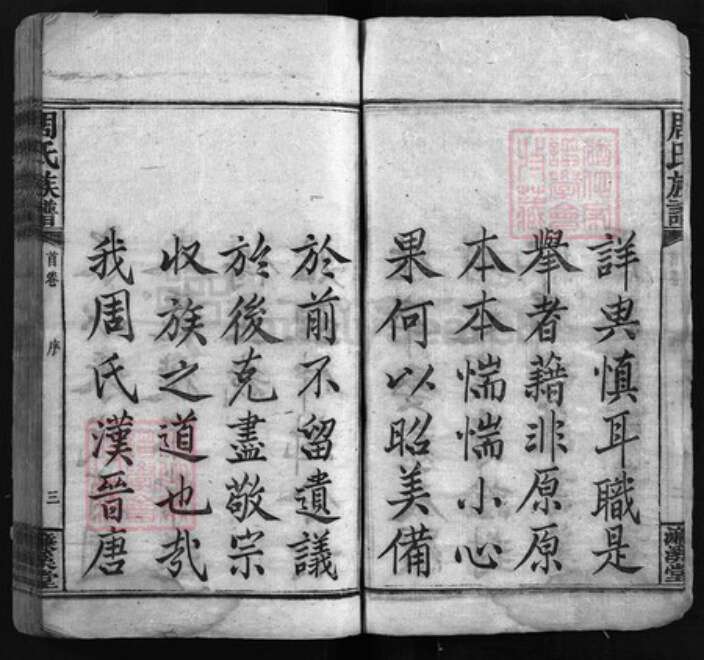 詳典慎耳職是
舉者藉非原原
本本惴惴小心
果何以昭美備
於前不留遺議
於後克盡敬宗
收族之道也哉
我周氏漢晉唐
周氏族譜
首卷
序
三
周氏族譜
首卷